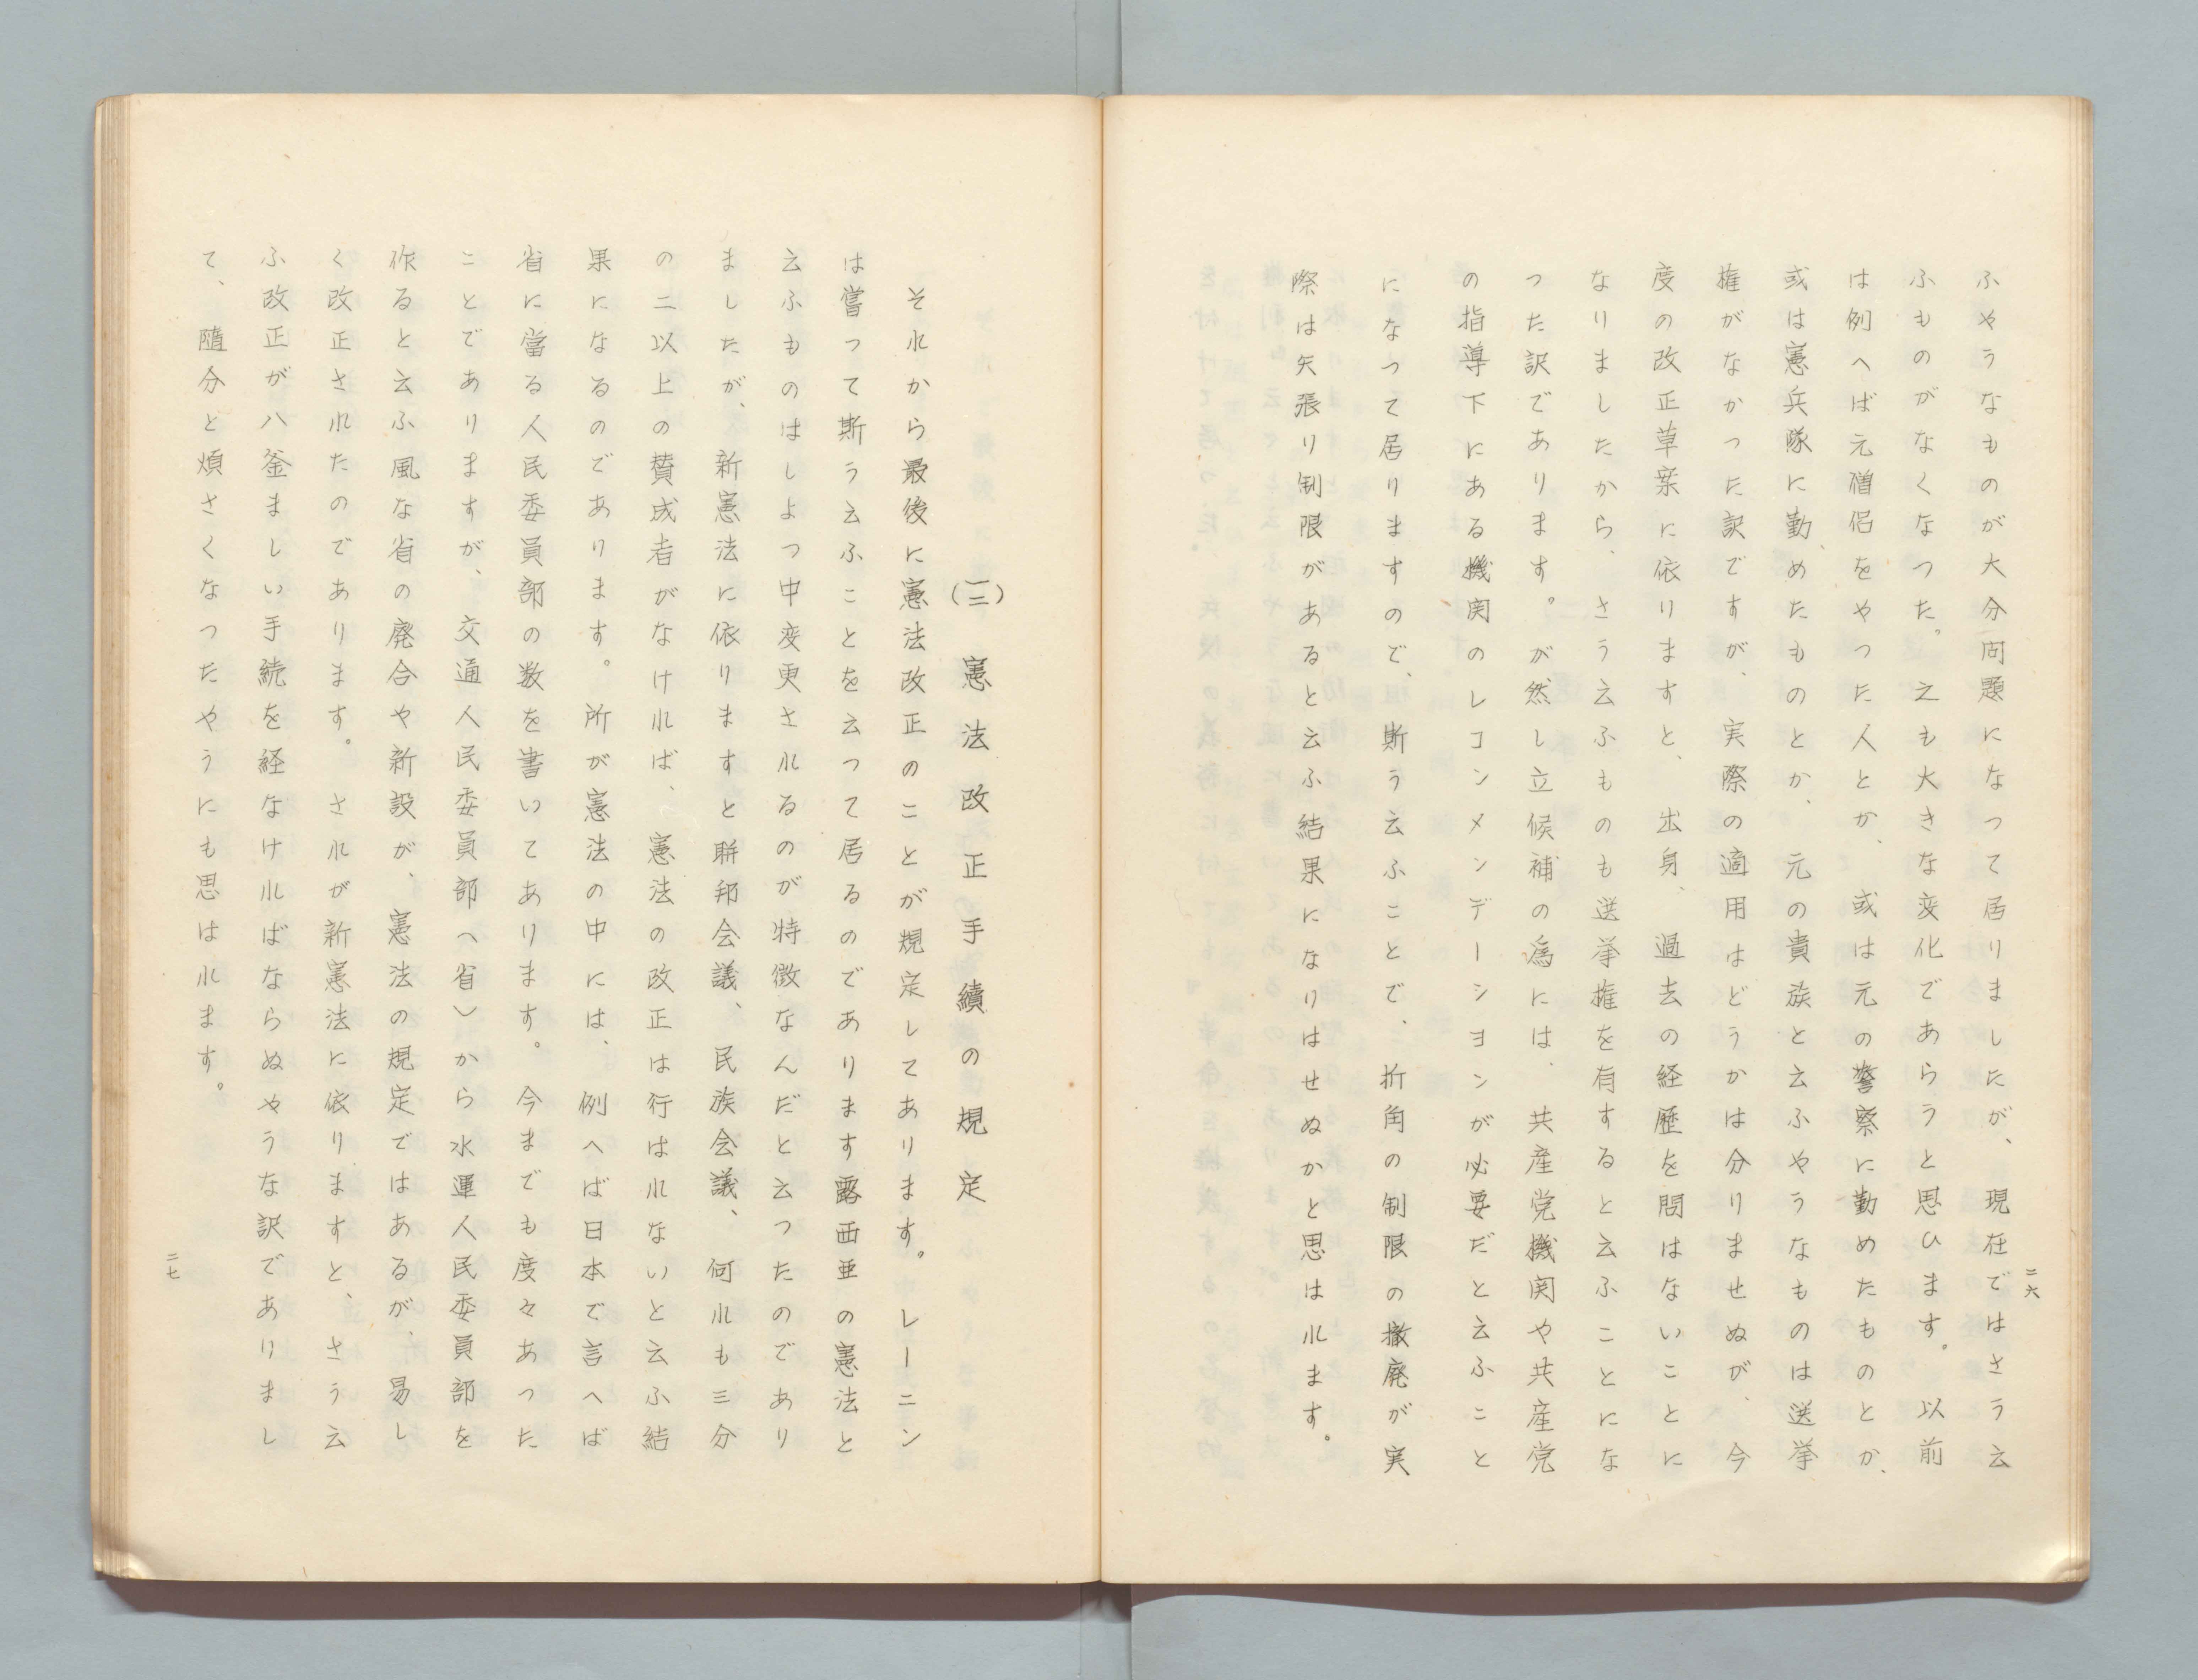 ふやうなものが大分問題になつて居りましたが、現在ではさう云
ふものがなくなつた。之も大きな変化であらうと思ひます。以前
は例へば元僧侶をやつた人とか、或は元の警察に勤めたものとか、
或は憲兵隊に勤めたものとか、元の貴族と云ふやうなものは送挙
権がなかつた訳ですが、実際の適用はどうかは分りませぬが、今
度の改正草案に依りますと、出身、過去の経歴を問はないことに
なりましたから、さう云ふものも送挙権を有すると云ふことにな
つた訳であります。が然し立候補の為には、共産党機関や共産党
の指導下にある機関のレコンメンデーシヨンが必要だと云ふこと
になつて居りますので、斯う云ふことで、折角の制限の撤廃が実
際は矢張り制限があると云ふ結果になりはせぬかと思は礼ます。
二六
(三) 憲法改正手續の規定
それから最後に憲法改正のことが規定してあります。レーニン
は嘗つて斯う云ふことを云つて居るのであります露西亜の憲法と
云ふものはしよつ中変更されるのが特徴なんだと云つたのであり
ましたが、新憲法に依りますと聨邦会議、民族会議、何れも三分
の二以上の賛成者がなければ、憲法の改正は行はれないと云ふ結
果になるのであります。所が憲法の中には、例へば日本で言へば
省に當る人民委員部の数を書いてあります。今までも度々あつた
ことでありますが、交通人民委員部〈省〉から水運人民委員部を
作ると云ふ風な省の廃合や新設が、憲法の規定ではあるが、易し
く改正されたのであります。されが新憲法に依りますと、さう云
ふ改正が八釜ましい手続を経なければならぬやうな訳でありまし
て、随分と煩さくなつたやうにも思はれます。
二七